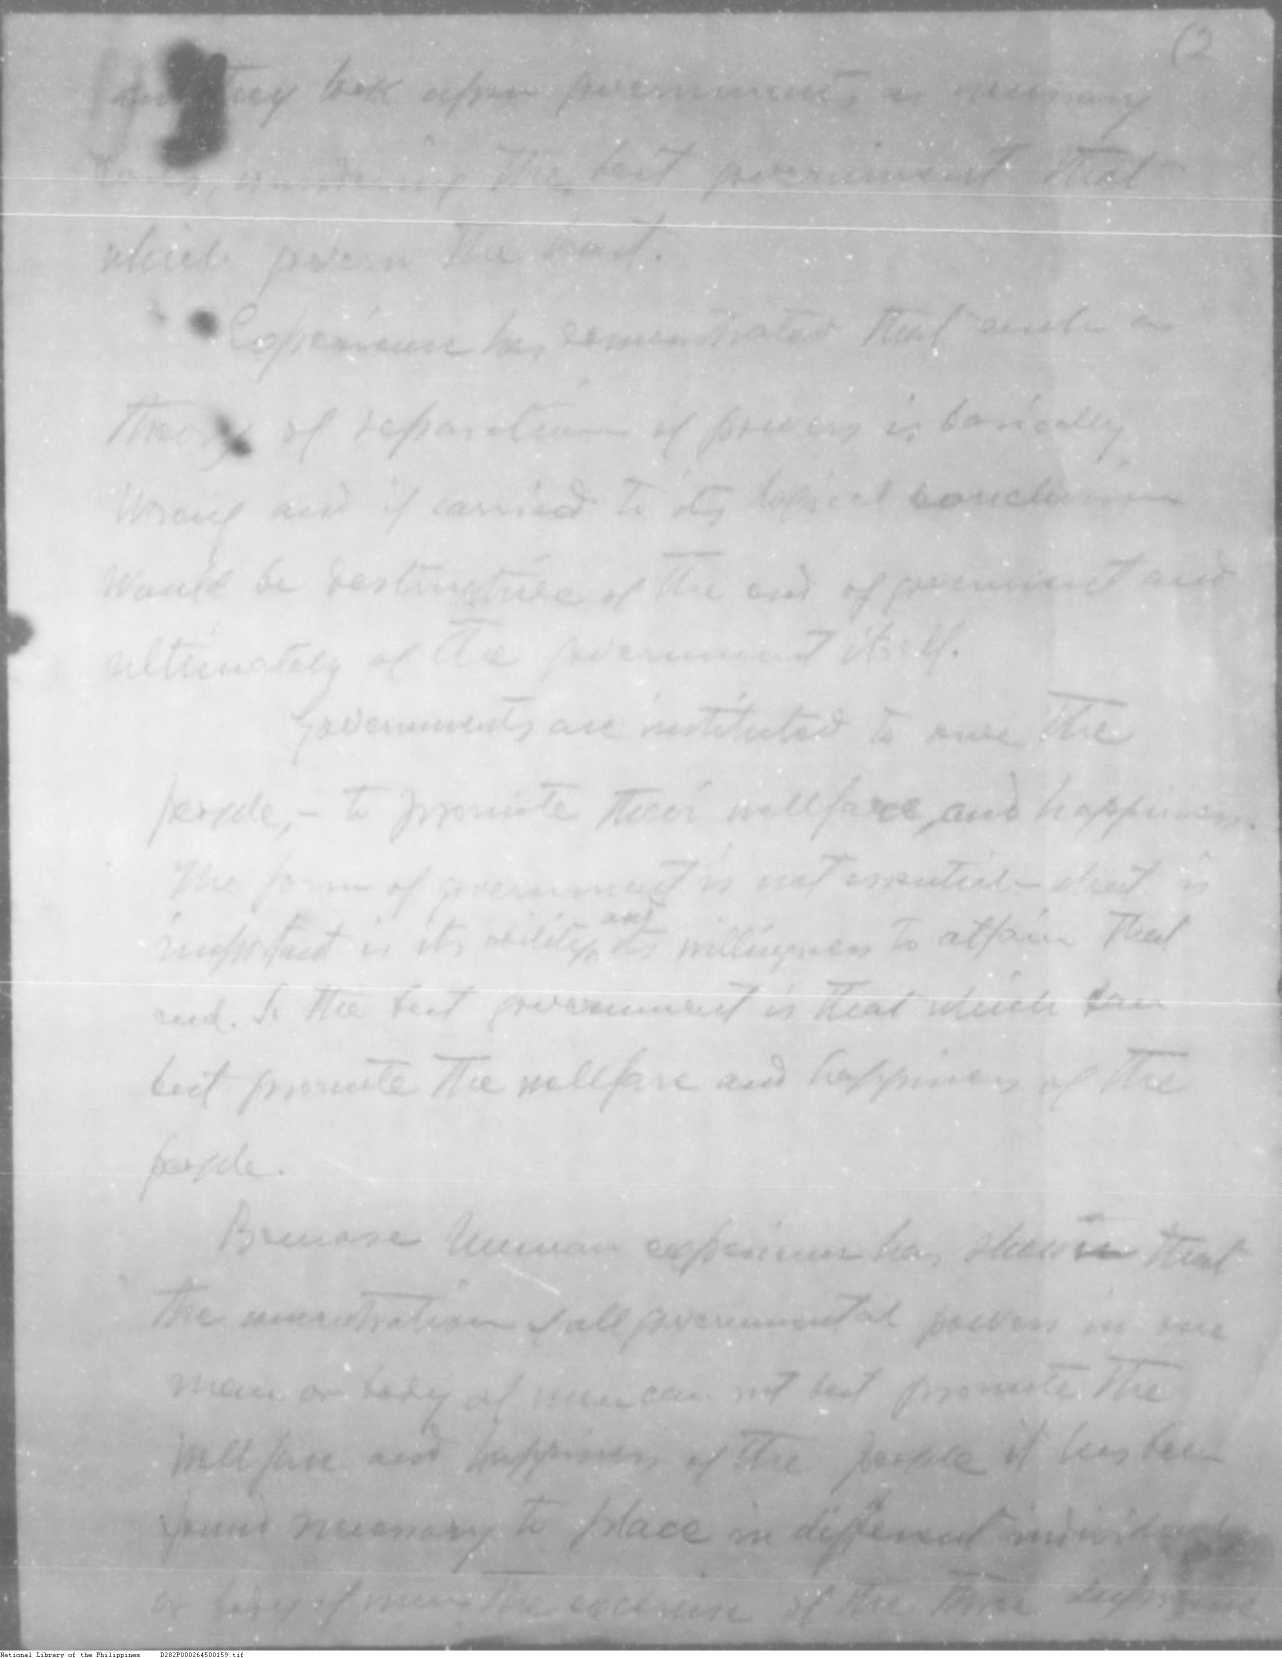 (2
they look upon governments as necessary
considering the best government that
which govern the least.
Experience has demonstrated that such a
theory of separation of powers is basically
wrong and if carried to its logical conclusion
would be destructive of the end of government and
ultimately of the government itself.
Governments are instituted to serve the
people, - to promote their wellfare, and happiness.
The form of government is not essential - what is
important is its ability and its willingness to attain that
end. So the best government is that which can
best promote the wellfare and happiness of the
people.
Because human experience has shown that
the concentration of all governmental powers in one
man or body of men can not best promote the
wellfare and happiness of the people it has been
found necessary to place in different individuals
or body of men the exercise of the three different
National Library of the Philippines D282P000264500159.tif